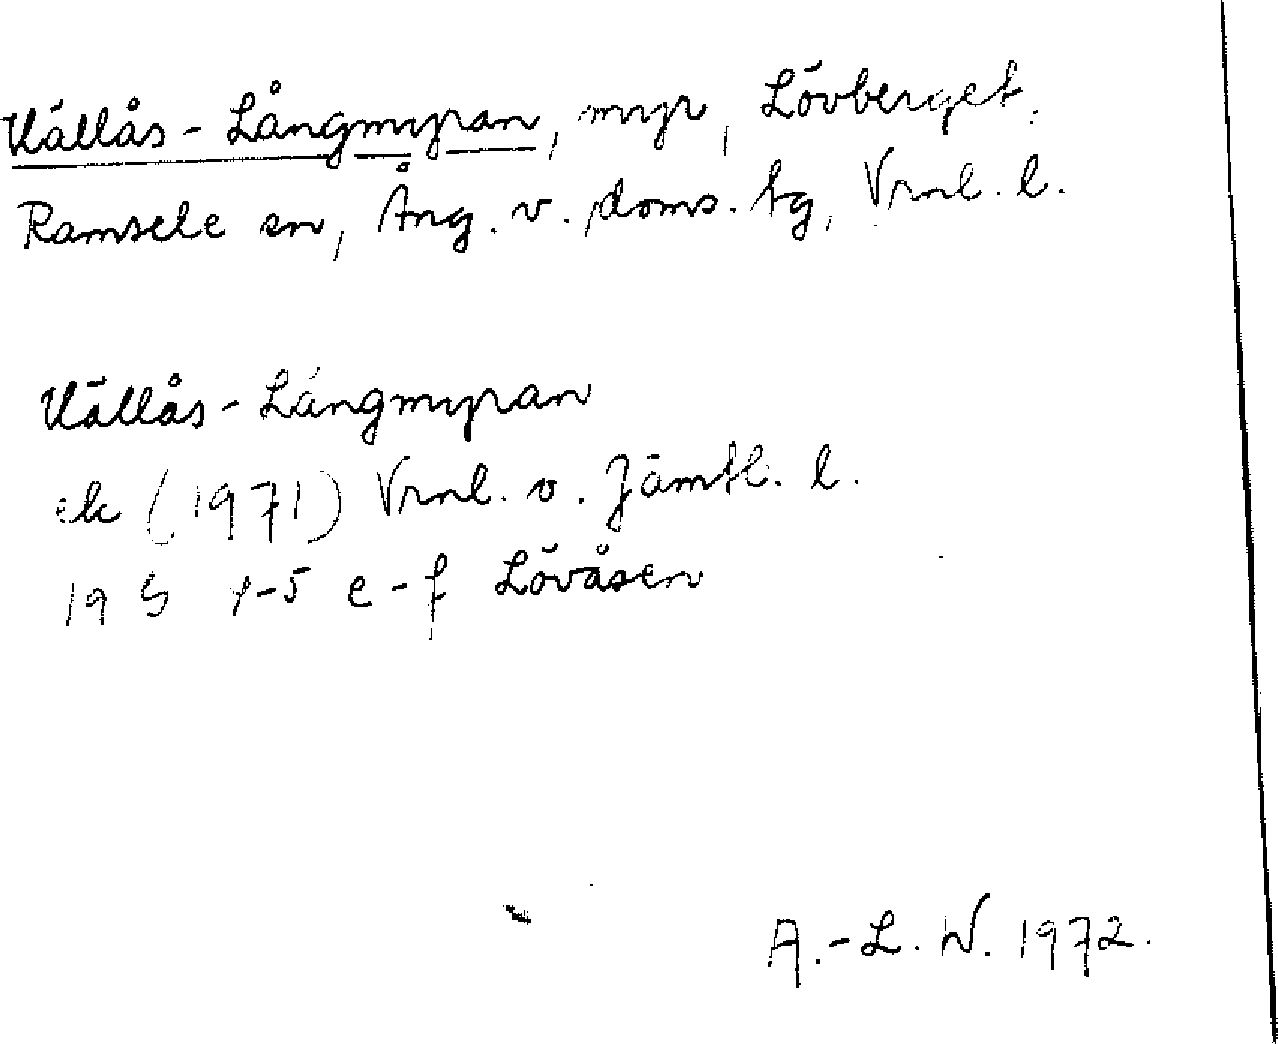 Källås-Långmyran, myr, Lövberget.
Ramsele sn, Ång. v. doms. tg, Vrnl. l.
Källås-Långmyran
ek (1971) Vrnl. o. Jämtl. l.
19 G 4-5 e-f Lövåsen
A.-L. W. 1972.